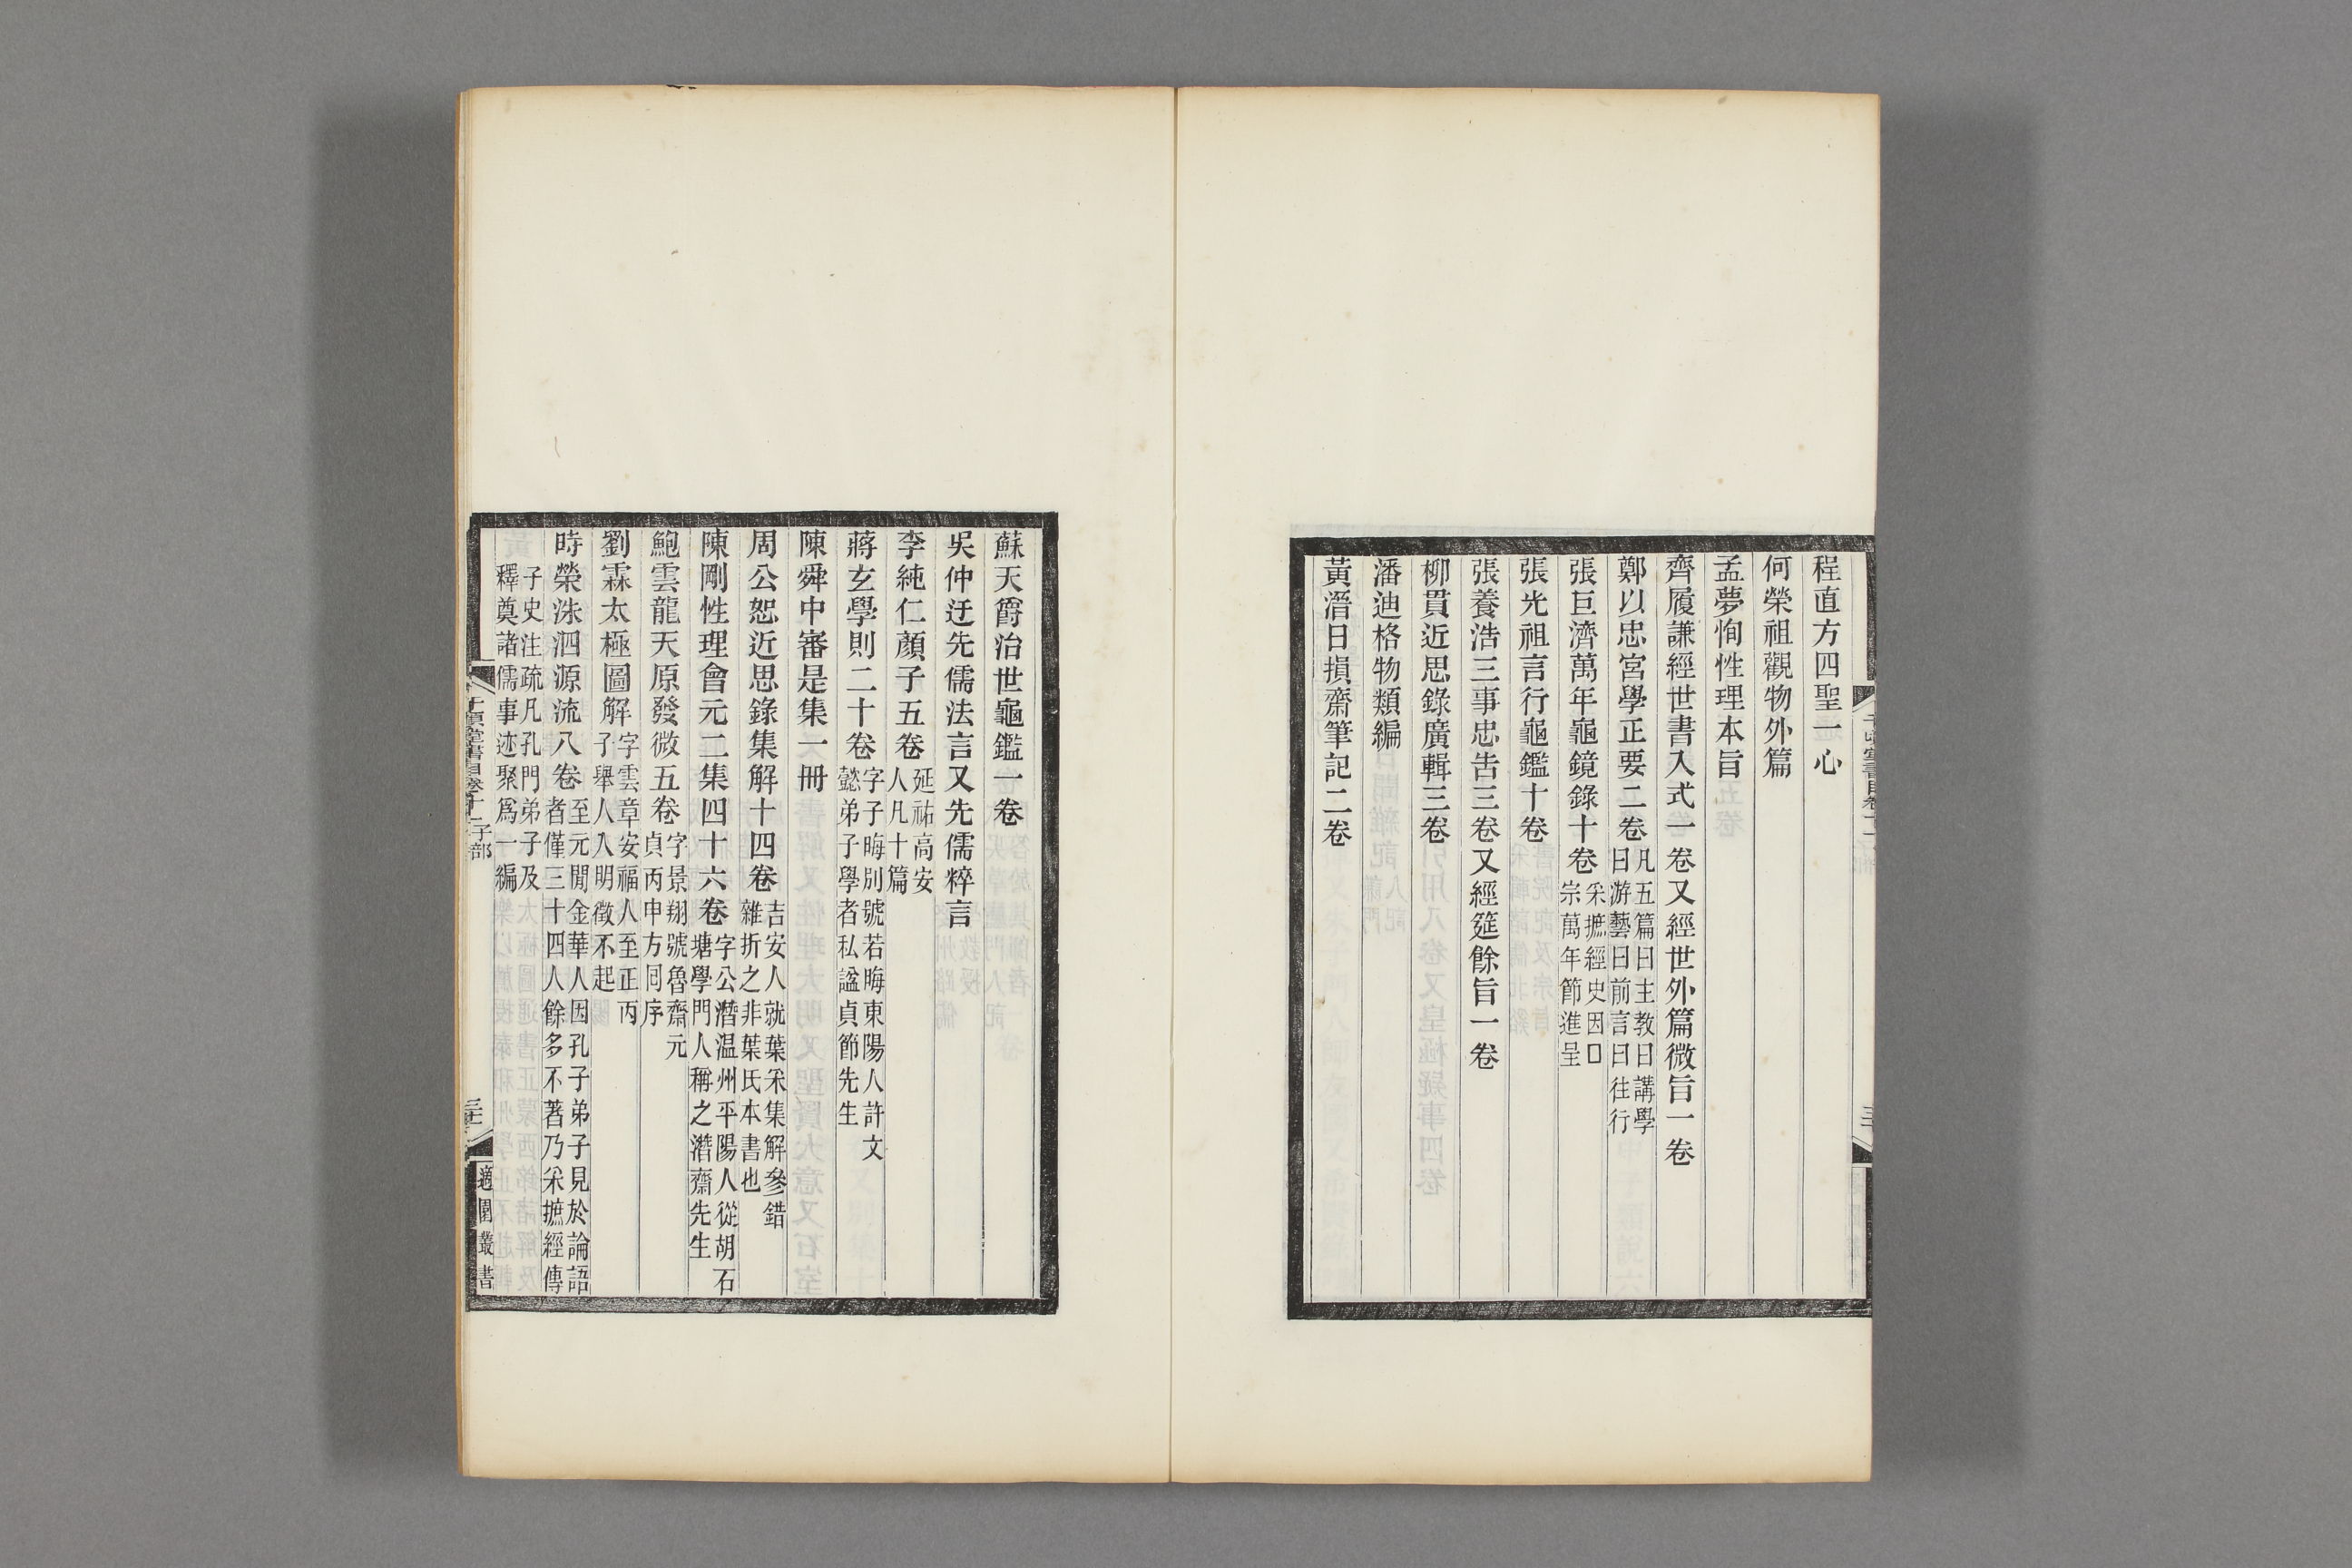 程直方四聖一心
何榮祖觀物外篇
孟夢恂性理本旨
齊履謙經世書入式一卷又經世外篇微旨一卷
鄭以忠宮學正要二卷凡五篇曰主教曰講學
曰游藝曰前言曰往行
張巨濟萬年龜鏡錄十卷采摭經史因□
宗萬年節進呈
張光祖言行龜鑑十卷
張養浩三事忠告三卷又經筵餘旨一卷
柳貫近思錄廣輯三卷
潘迪格物類編
黃溍日損齋筆記二卷
蘇天爵治世龜鑑一卷
吳仲迂先儒法言又先儒粹言
李純仁顏子五卷延祐高安
人凡十篇
蔣玄學則二十卷字子晦別號若晦東陽人許文
懿弟子學者私諡貞節先生
陳舜中審是集一冊
周公恕近思錄集解十四卷吉安人就葉采集解參錯
雜折之非葉氏本書也
陳剛性理會元二集四十六卷字公潛温州平陽人從胡石
塘學門人稱之潛齋先生
鮑雲龍天原發微五卷字景翔號魯齋元
貞丙申方回序
劉霖太極圖解字雲章安福人至正丙
子舉人入明徵不起
時榮洙泗源流八卷至元閒金華人因孔子弟子見於論語
者僅三十四人餘多不著乃采摭經傳
子史注疏凡孔門弟子及
釋奠諸儒事迹聚爲一編
千頃堂書目卷十一子部
三十一
適園叢書